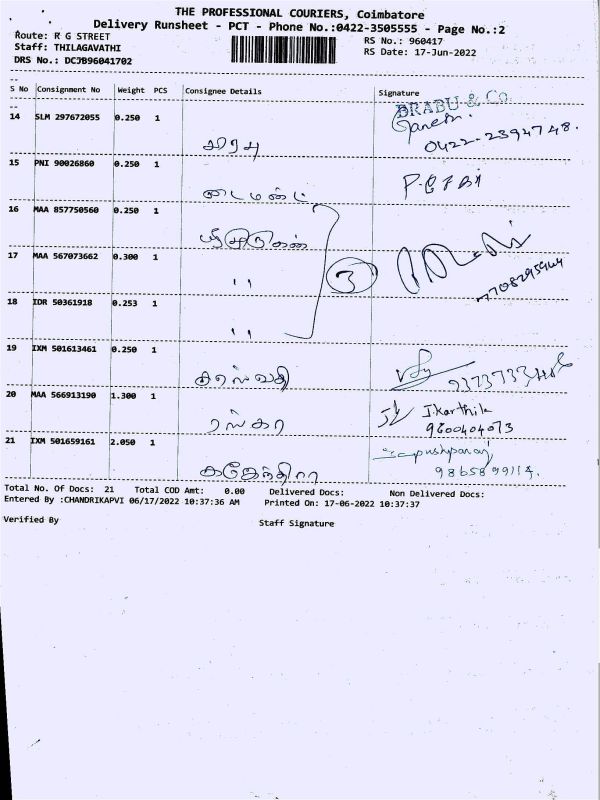 THE PROFESSIONAL COURIERS, Coimbatore
Delivery Runsheet - PCT - Phone No.:0422-3505555 - Page No.:2
Route: R G STREET
RS No.: 960417
Staff: THILAGAVATHI
RS Date: 17-Jun-2022
DRS No.: DCJB96041702
S No Consignment No Weight PCS Consignee Details Signature
14 SLM 297672055 0.250 1 பிரபு PRABU & Co. Ganesh 0422-2394748.
15 PNI 90026860 0.250 1 டைமண்ட்
16 MAA 857750560 0.250 1
17 MAA 567073662 0.300 1 " 3 7708295944
18 IDR 50361918 0.253 1 "
19 IXM 501613461 0.250 1 சரஸ்வதி
20 MAA 566913190 1.300 1 J.karthik 9600404073
21 IXM 501659161 2.050 1 கஜேந்திரா pushparaj 9865899114.
Total No. Of Docs: 21 Total COD Amt: 0.00 Delivered Docs: Non Delivered Docs:
Entered By :CHANDRIKAPVI 06/17/2022 10:37:36 AM Printed On: 17-06-2022 10:37:37
Verified By Staff Signature